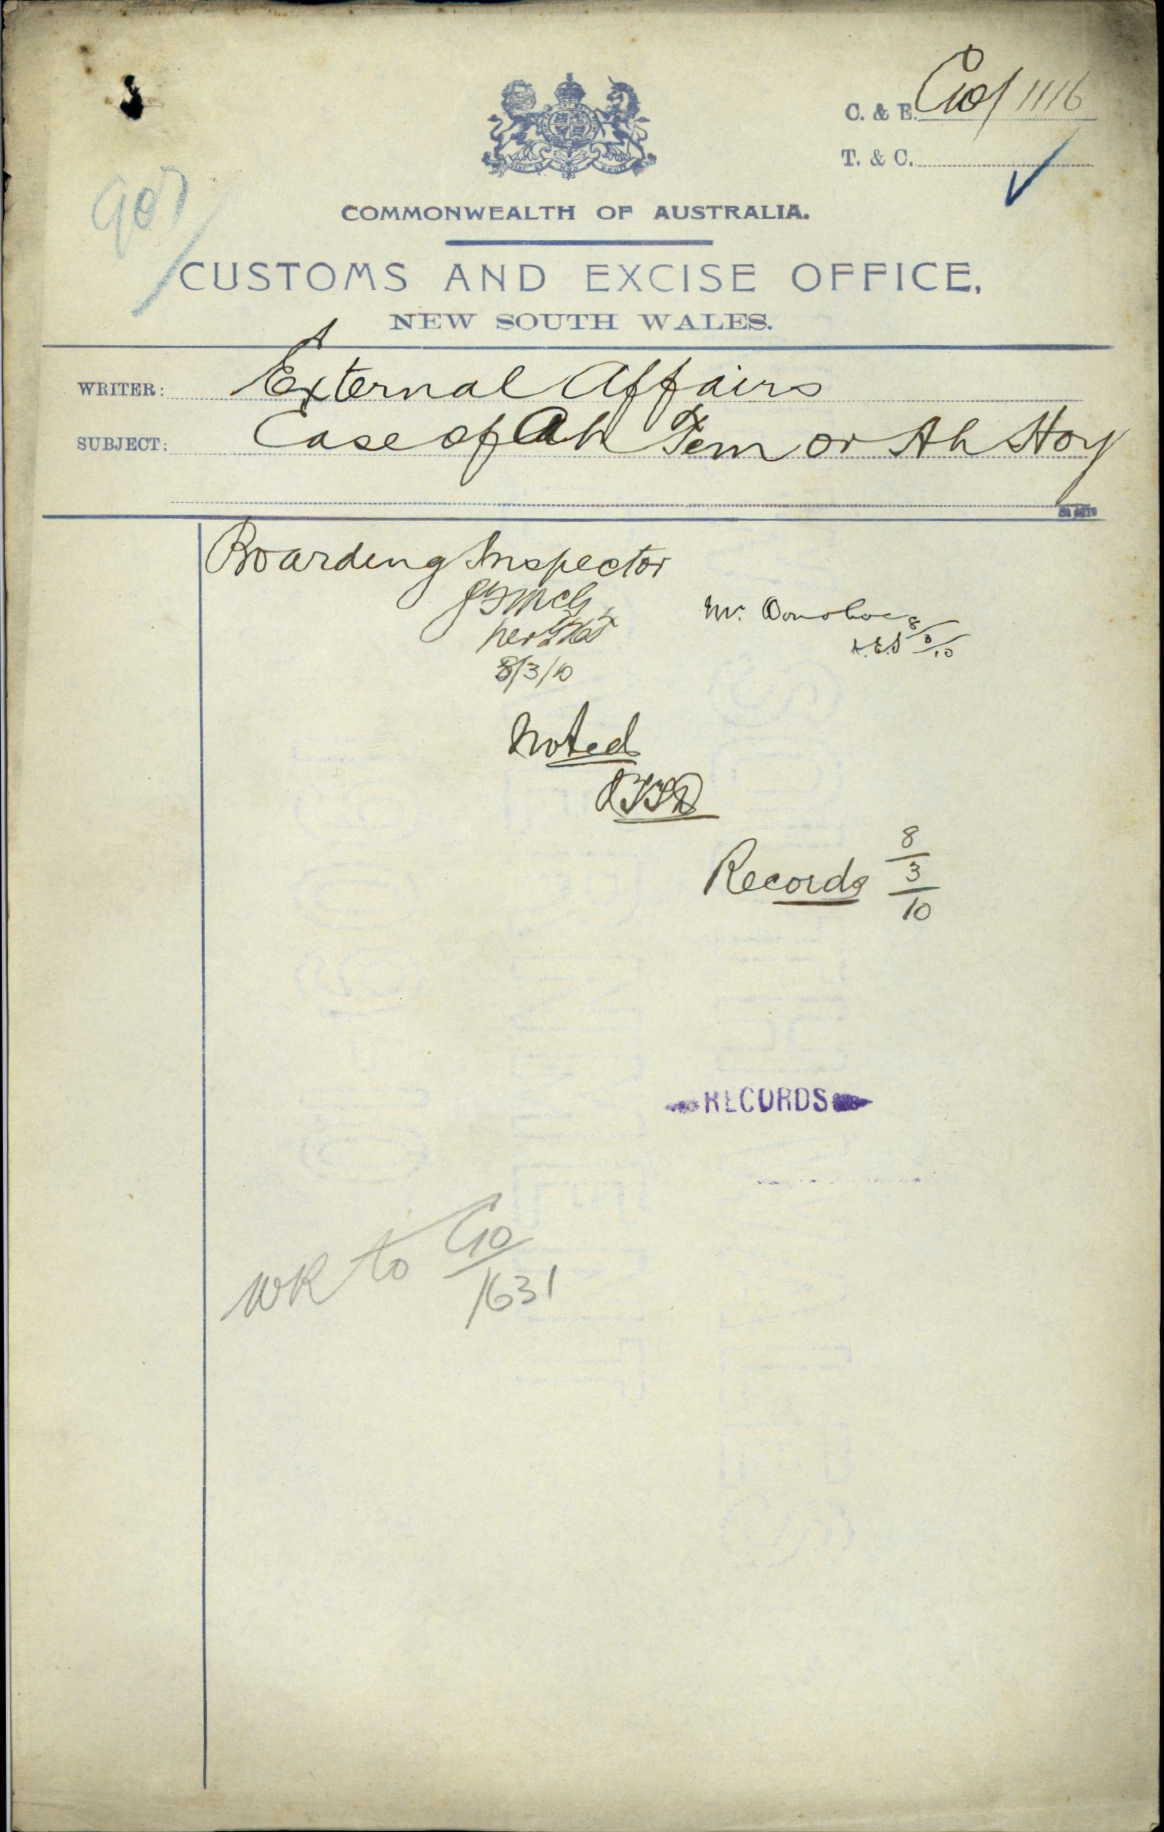 C. & E. C10/1116
T. & C.
907
COMMONWEALTH OF AUSTRALIA.
CUSTOMS AND EXCISE OFFICE,
NEW SOUTH WALES.
WRITER: External Affairs
SUBJECT: Case of Ah Fem or Ah Hoy
Boarding Inspector
per
8/3/10
Mr. Donohoe
8/3/10
Noted
Records 8/3/10
RECORDS
WR to C10/1631